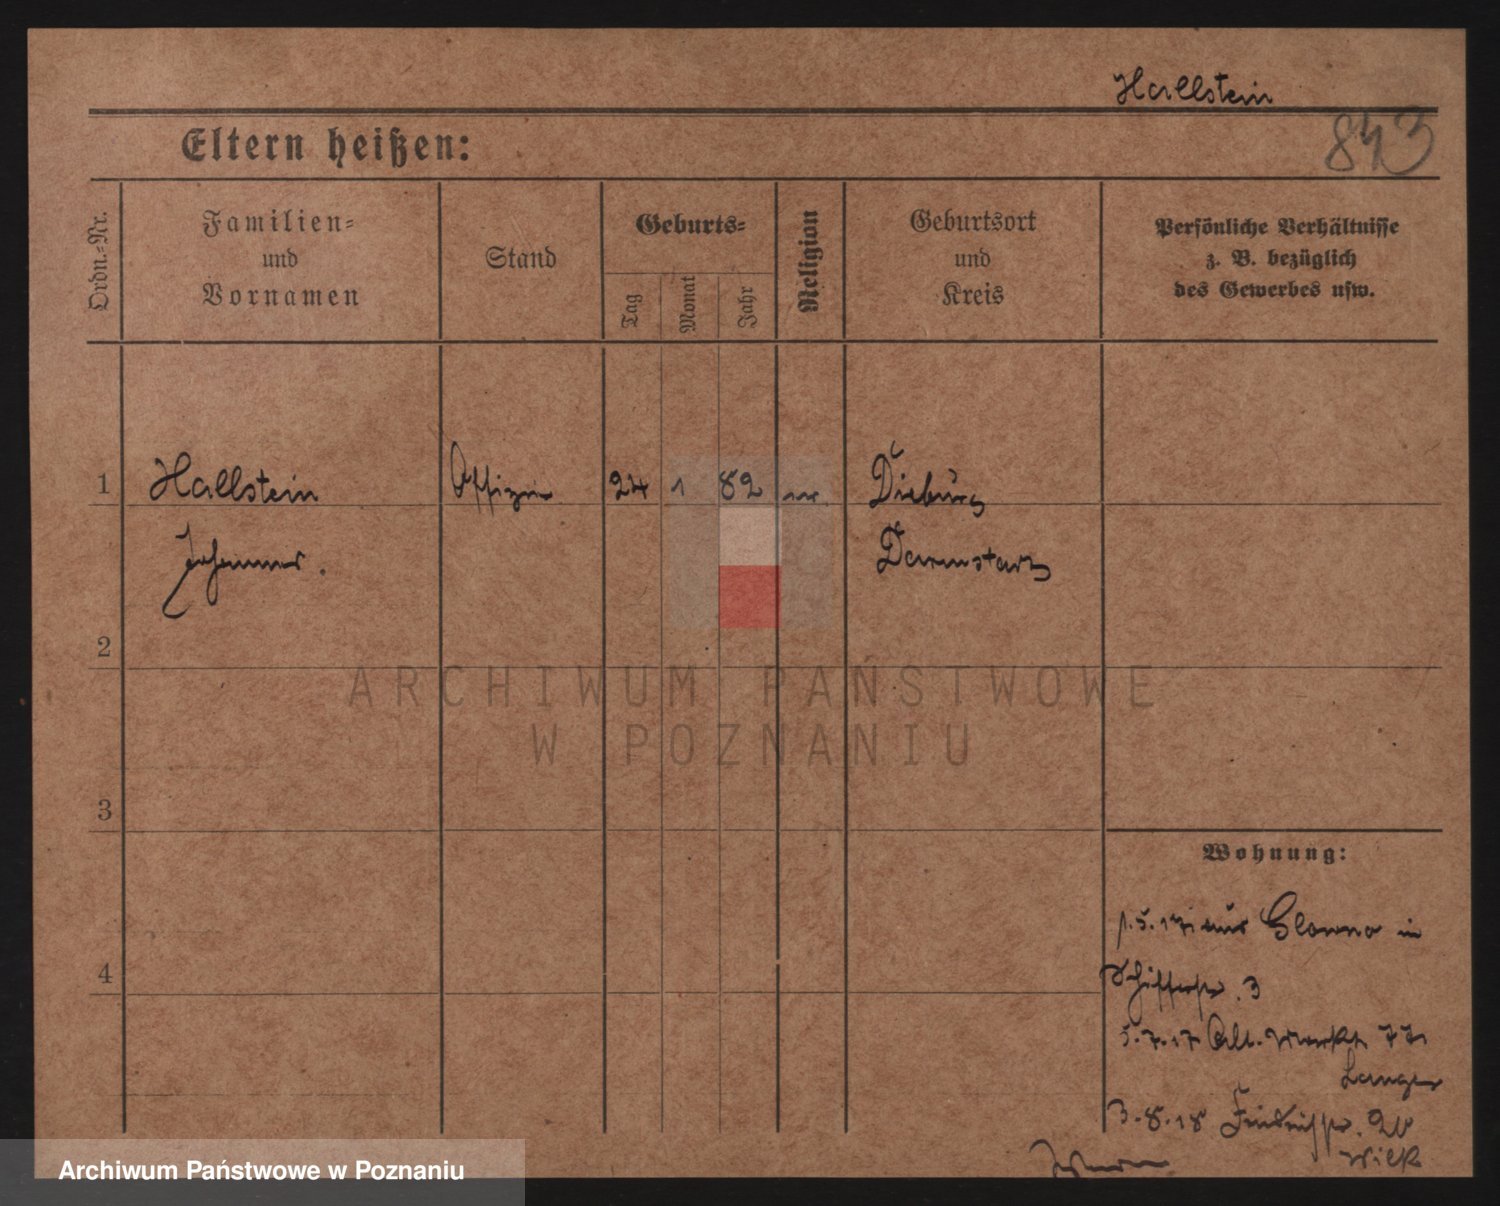 Hallstein
843
Eltern heißen:
Ordn.-Nr.
Familien-
und
Vornamen
Stand
Geburts-
Tag
Monat
Jahr
Religion
Geburtsort
und
Kreis
Persönliche Verhältnisse
z. B. bezüglich
des Gewerbes usw.
1 Hallstein Offizier 24 1 82 Dieburg
Johannes. Darmstadt
2
ARCHIWUM PAŃSTWOWE
W POZNANIU
3
Wohnung:
1.5.17 aus Glowno in
4
Schifferstr. 3
5.7.17 Alt. Markt 77
Lange
3.8.18 Friedrichstr. 20
Wilk
Archiwum Państwowe w Poznaniu